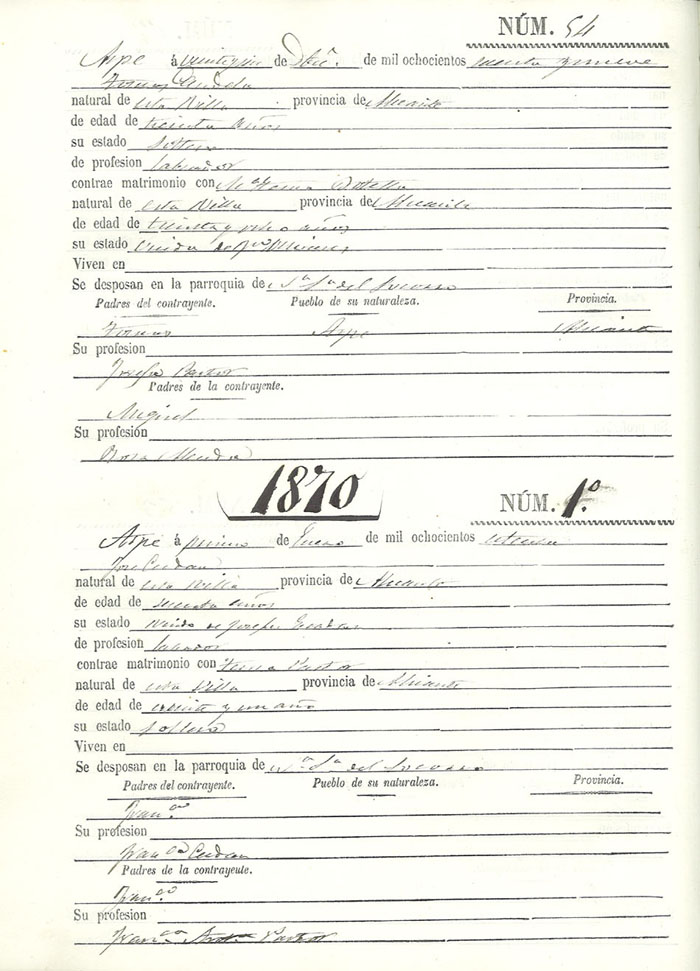 NÚM. 54
Aspe á veintiseis de Dbre. de mil ochocientos sesenta y nueve
Tomas
natural de esta Villa provincia de Alicante
de edad de treinta años
su estado Soltero
de profesion labrador
contrae matrimonio con Mª Botella
natural de esta Villa provincia de Alicante
de edad de treinta y ocho años
su estado Viuda de
Viven en
Se desposan en la parroquia de Nª Sª del Socorro
Padres del contrayente. Pueblo de su naturaleza. Provincia.
Tomas Aspe Alicante
Su profesion
Josefa Pastor
Padres de la contrayente.
Miguel
Su profesión
Rosa
1870
NÚM. 1.º
Aspe á primero de Enero de mil ochocientos setenta
José Cerdan
natural de esta Villa provincia de Alicante
de edad de años
su estado Viudo de Josefa
de profesion labrador
contrae matrimonio con Pastor
natural de esta Villa provincia de Alicante
de edad de y un año
su estado Soltera
Viven en
Se desposan en la parroquia de Nª Sª del Socorro
Padres del contrayente. Pueblo de su naturaleza. Provincia.
Franco
Su profesion
Franca Cerdan
Padres de la contrayente.
Franco
Su profesion
Franca Pastor